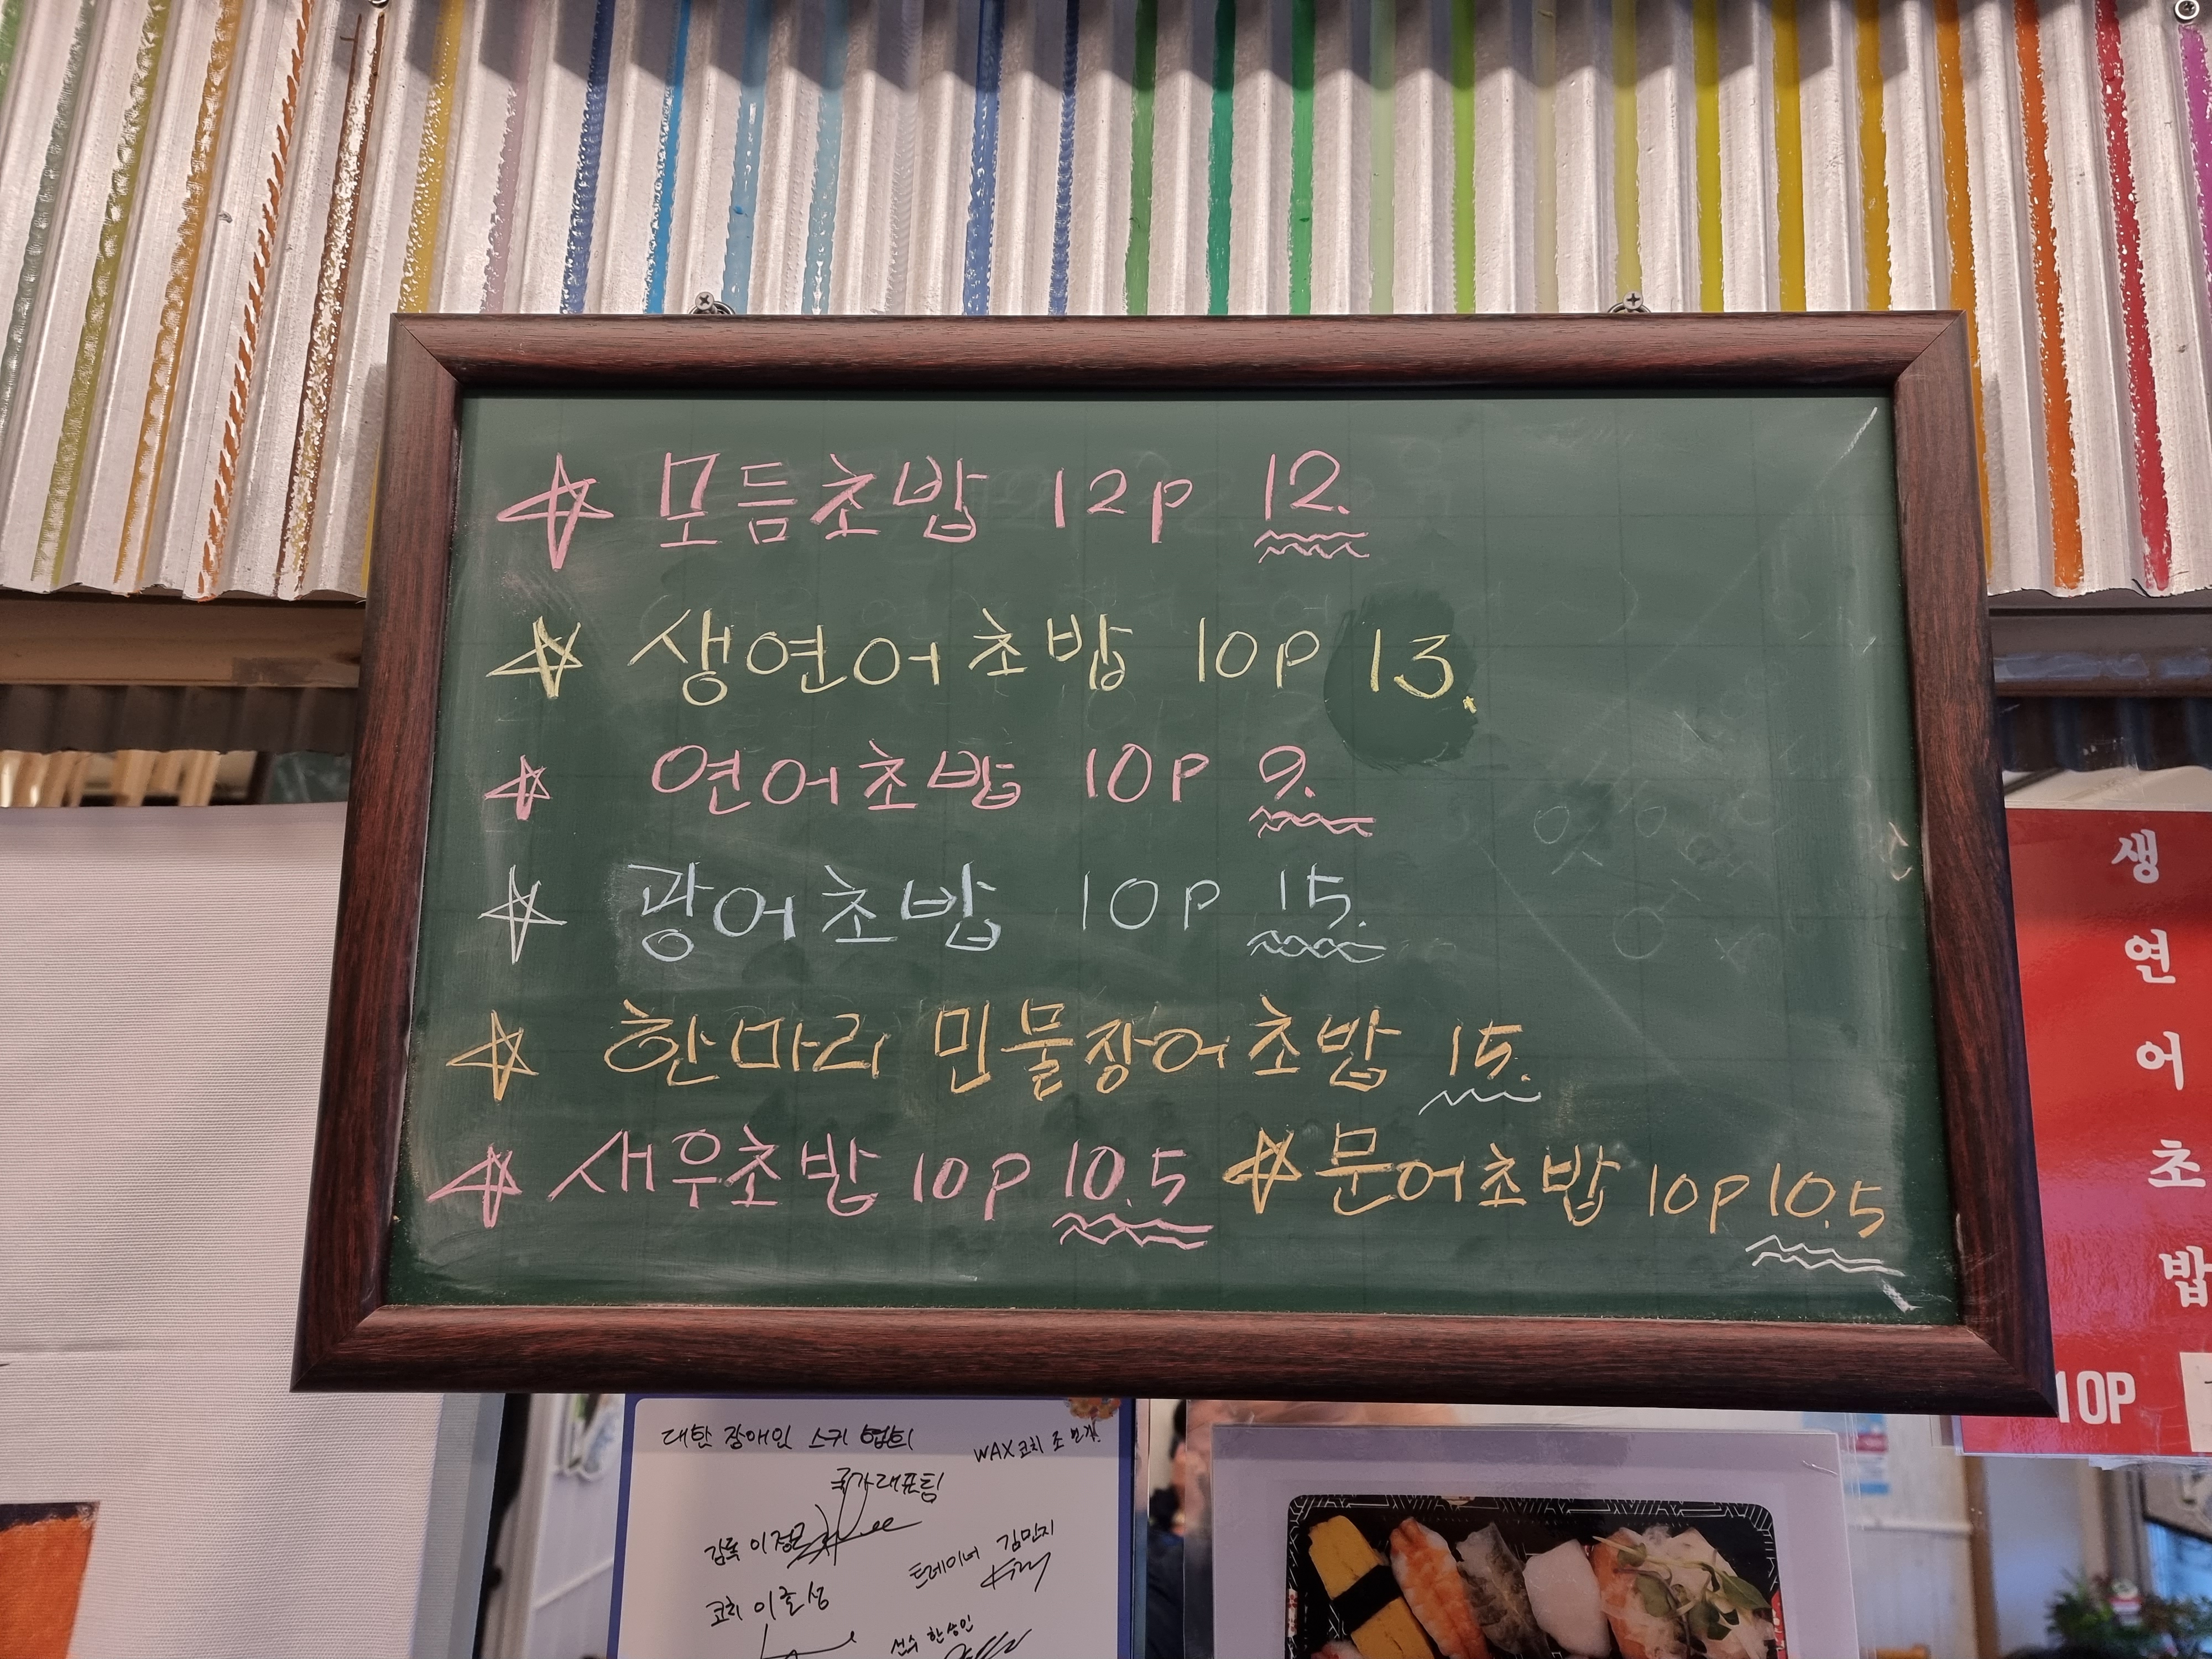 ☆ 모듬초밥 12p 12.
☆ 생연어초밥 10p 13.
☆ 연어초밥 10p 9.
☆ 광어초밥 10p 15.
☆ 한마리 민물장어초밥 15.
☆ 새우초밥 10p 10.5 ☆ 문어초밥 10p 10.5
생
연
어
초
밥
10P
대한 장애인 스키 협회
WAX코치 조
국가대표팀
감독 이정
트레이너 김민지
코치 이준성
선수 한승인